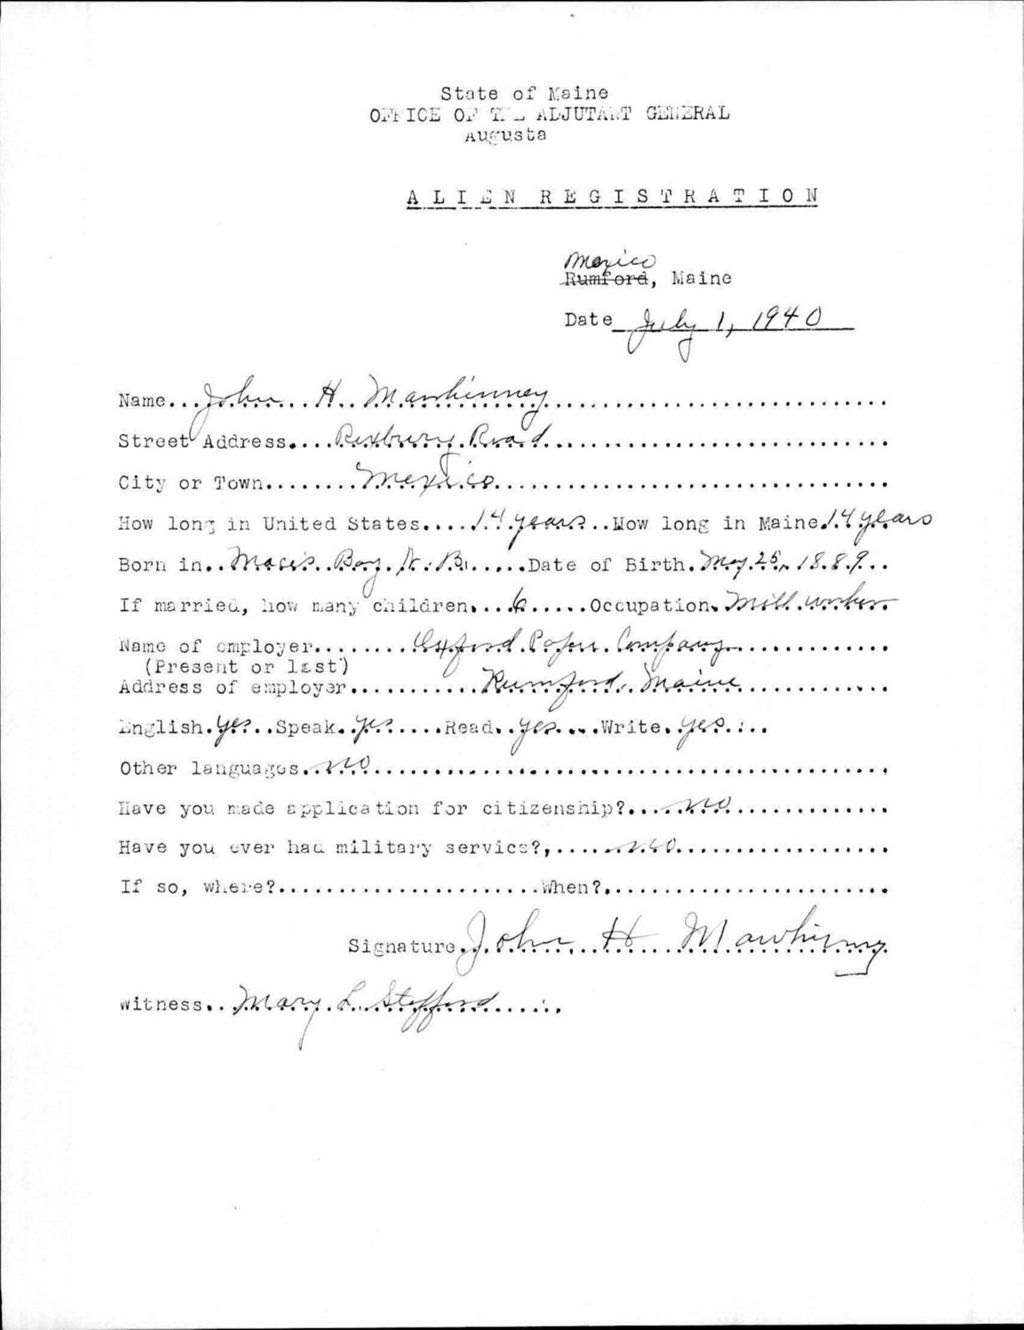 State of Maine
OFFICE OF THE ADJUTANT GENERAL
Augusta
ALIEN REGISTRATION
Mexico
Rumford, Maine
Date July 1, 1940
Name...John...H..Mawhinney
Street Address....Roxbury Road
City or Town........Mexico
How long in United States....14 years..How long in Maine.14 years
Born in..Maces Bay, N.B......Date of Birth.May 25, 1889...
If married, how many children...6.....Occupation.Mill worker
Name of employer........Oxford Paper Company
(Present or last)
Address of employer...........Rumford, Maine
English.yes..Speak..yes.....Read..yes....Write.yes...
Other languages..no
Have you made application for citizenship?....no
Have you ever had military service?,......no
If so, where?......................When?
Signature..John H Mawhinney
Witness..Mary L. Stafford